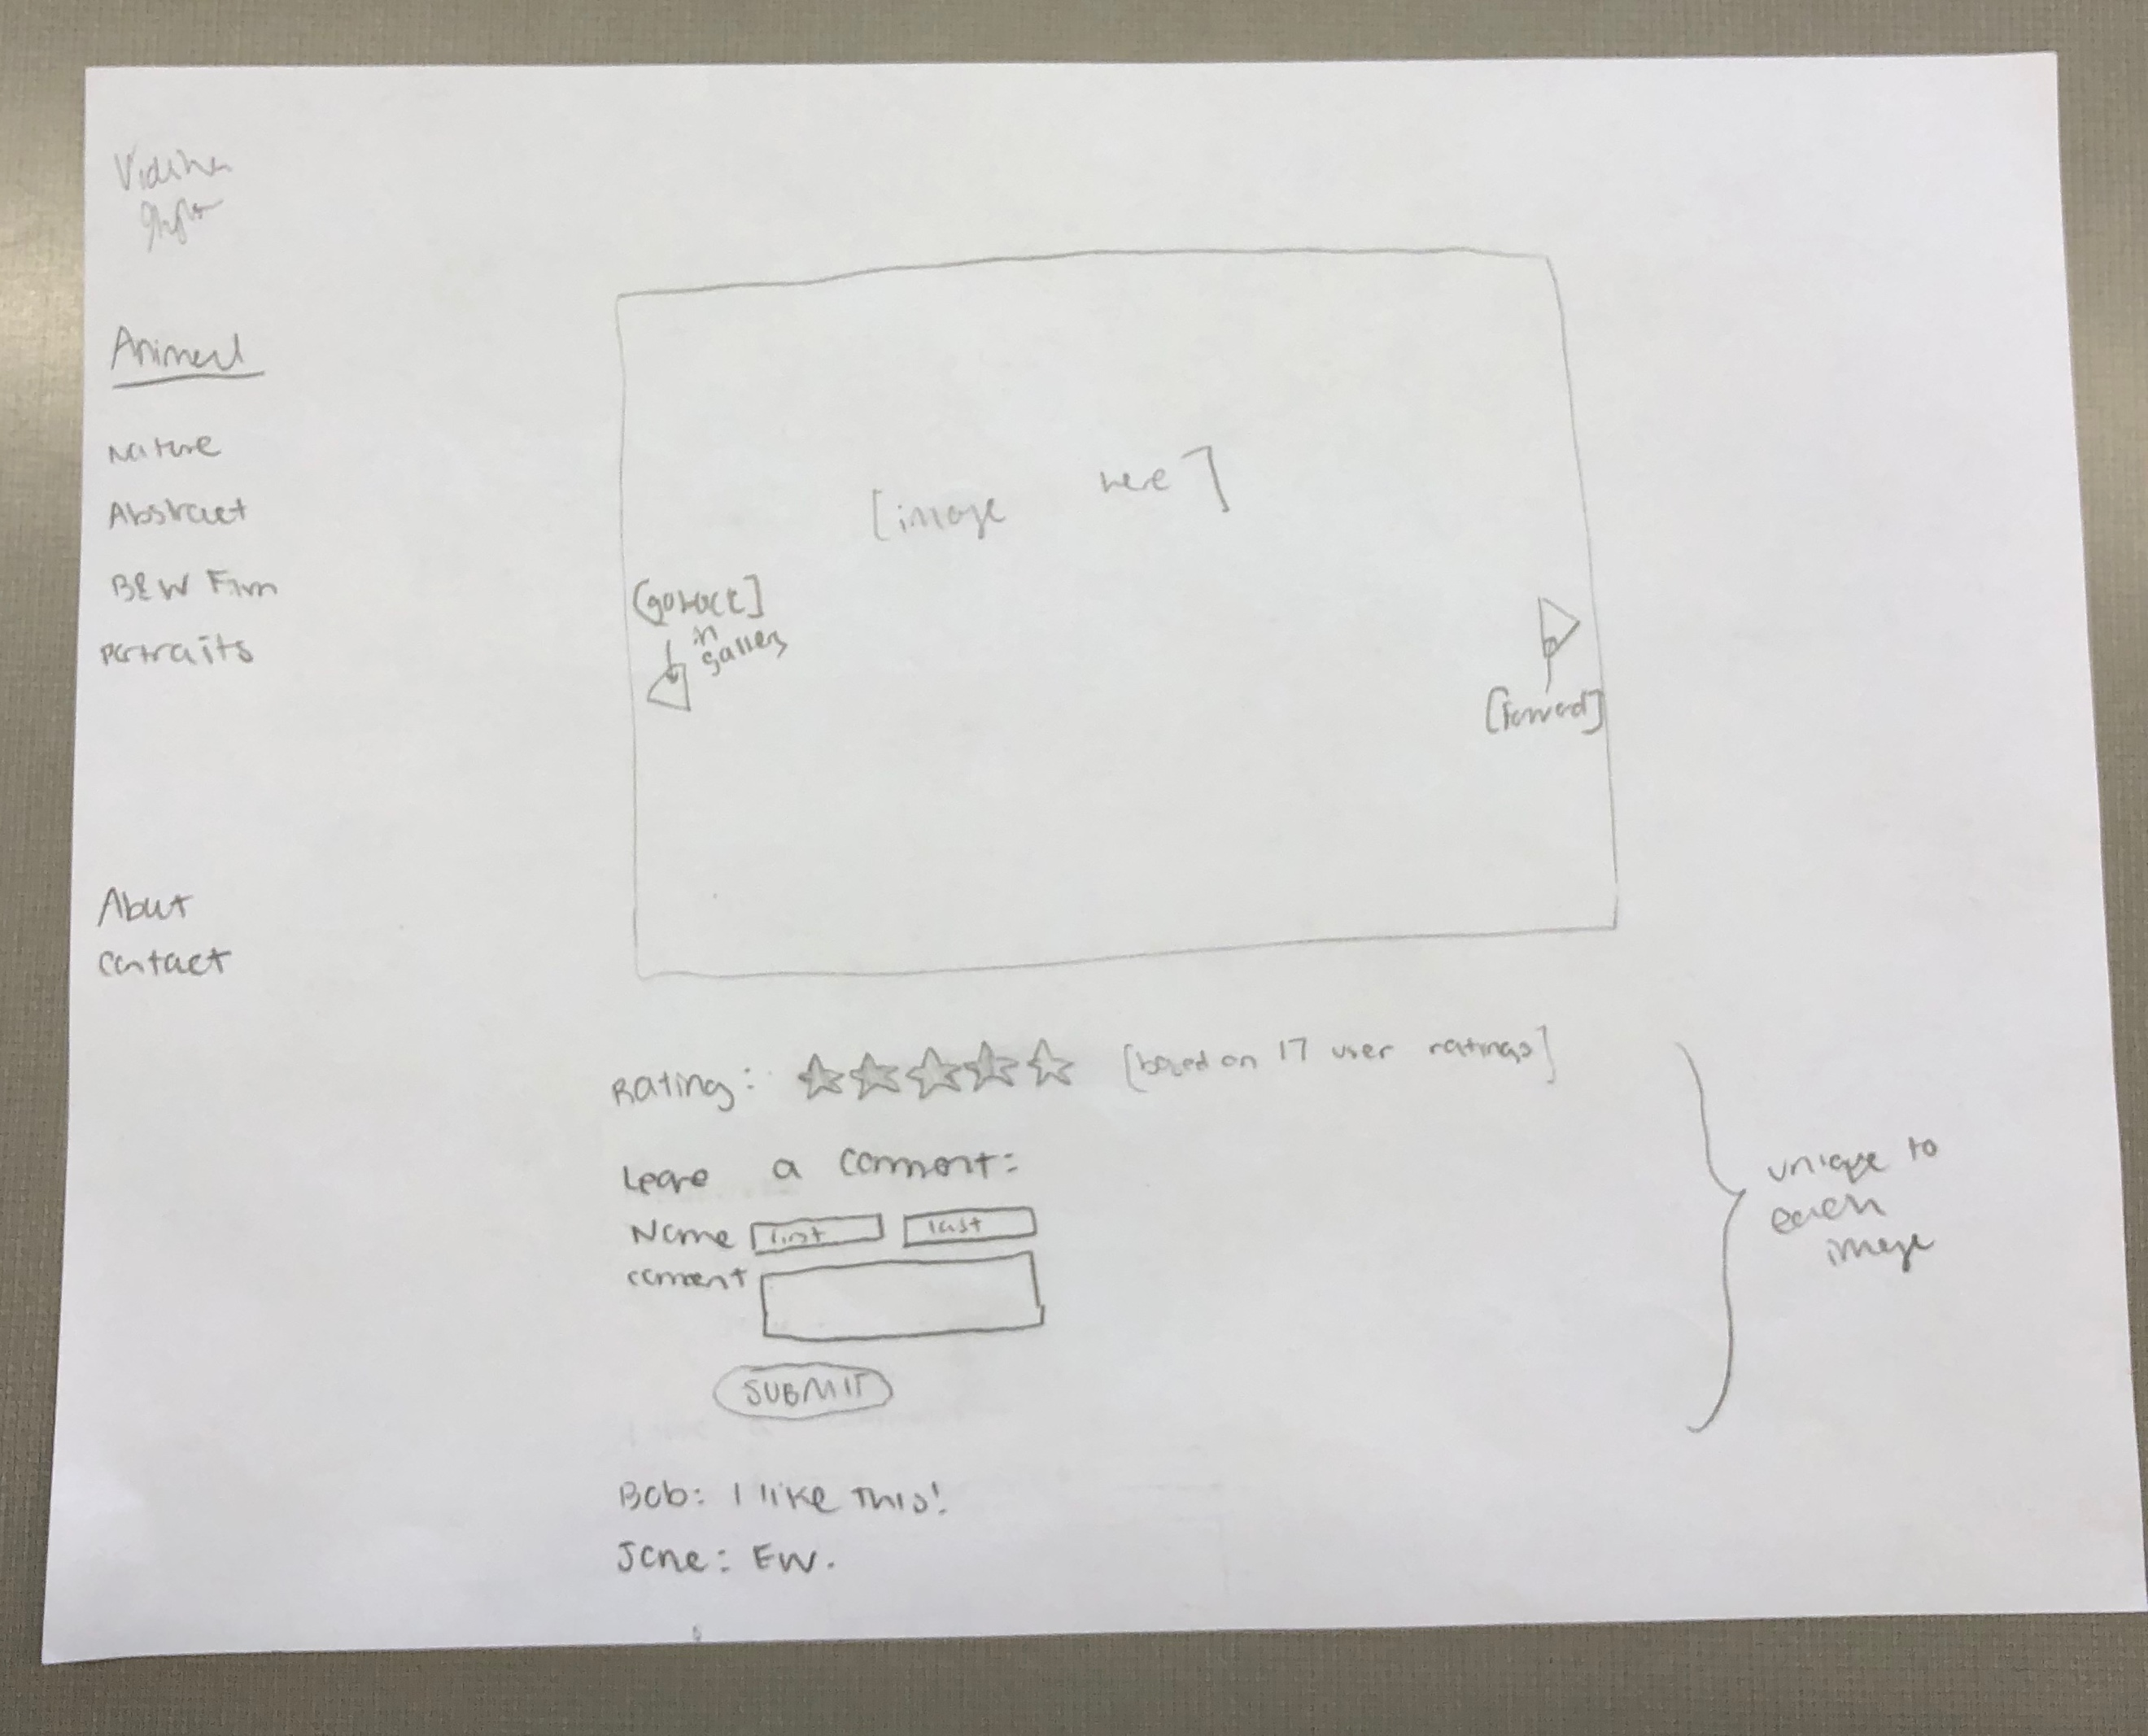 Animal
Nature
Abstract
B&W Film
Portraits
About
Contact
[image here]
[go back]
in
gallery
[forward]
Rating: [based on 17 user ratings]
Leave a comment:
Name first last
comment
SUBMIT
Bob: I like this!
Jane: Ew.
unique to
each
image